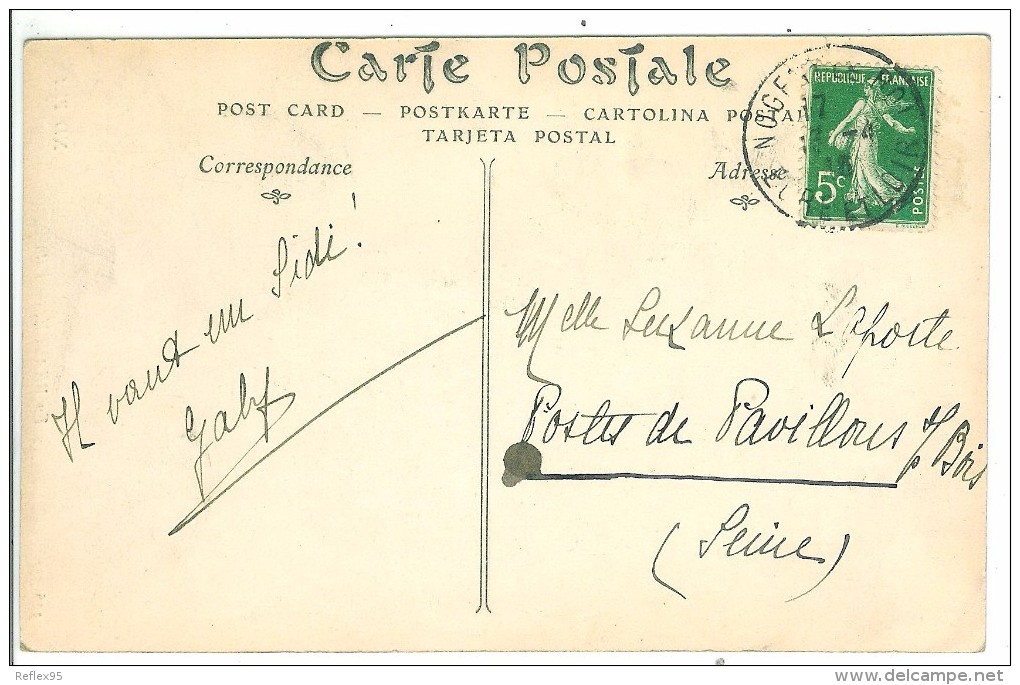 Carte Postale
POST CARD — POSTKARTE — CARTOLINA POSTALE
TARJETA POSTAL
Correspondance
Adresse
REPUBLIQUE FRANÇAISE
5c
POSTES
NOGENT
17
-4
EURE ET LOIR
Il vaut un Sidi !
Gaby
Melle Suzanne Laporte
Postes de Pavillons s/ Bois
(Seine)
Reflex95
www.delcampe.net